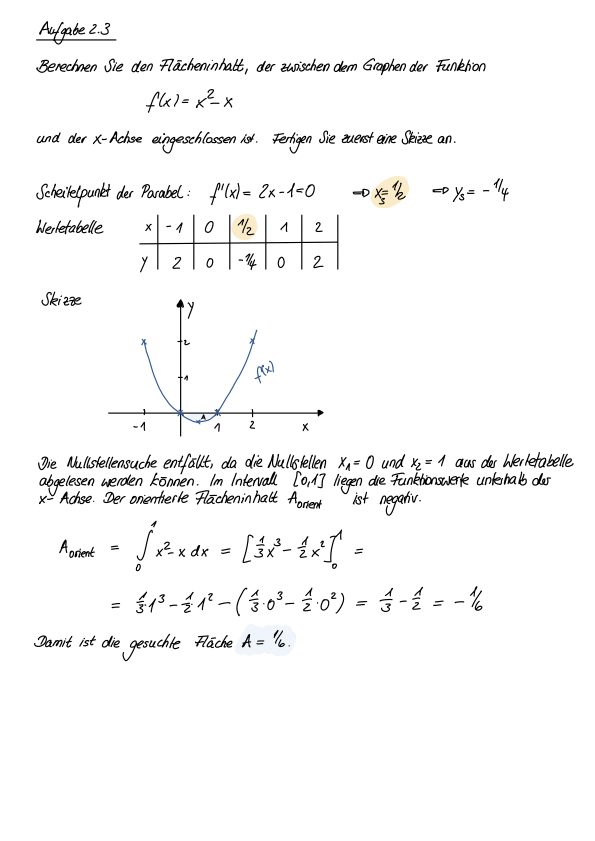 Aufgabe 2.3
Berechnen Sie den Flächeninhalt, der zwischen dem Graphen der Funktion
f(x) = x² - x
und der x-Achse eingeschlossen ist. Fertigen Sie zuerst eine Skizze an.
Scheitelpunkt der Parabel: f'(x) = 2x - 1 = 0 ⇒ xₛ = 1/2 ⇒ yₛ = - 1/4
Wertetabelle x | -1 | 0 | 1/2 | 1 | 2
y | 2 | 0 | -1/4 | 0 | 2
Skizze
y
2
f(x)
1
A
-1 1 2 x
Die Nullstellensuche entfällt, da die Nullstellen x₁ = 0 und x₂ = 1 aus der Wertetabelle
abgelesen werden können. Im Intervall [0,1] liegen die Funktionswerte unterhalb der
x-Achse. Der orientierte Flächeninhalt A_orient ist negativ.
A_orient = ∫₀¹ x² - x dx = [1/3 x³ - 1/2 x²]₀¹ =
= 1/3 · 1³ - 1/2 · 1² - (1/3 · 0³ - 1/2 · 0²) = 1/3 - 1/2 = - 1/6
Damit ist die gesuchte Fläche A = 1/6.